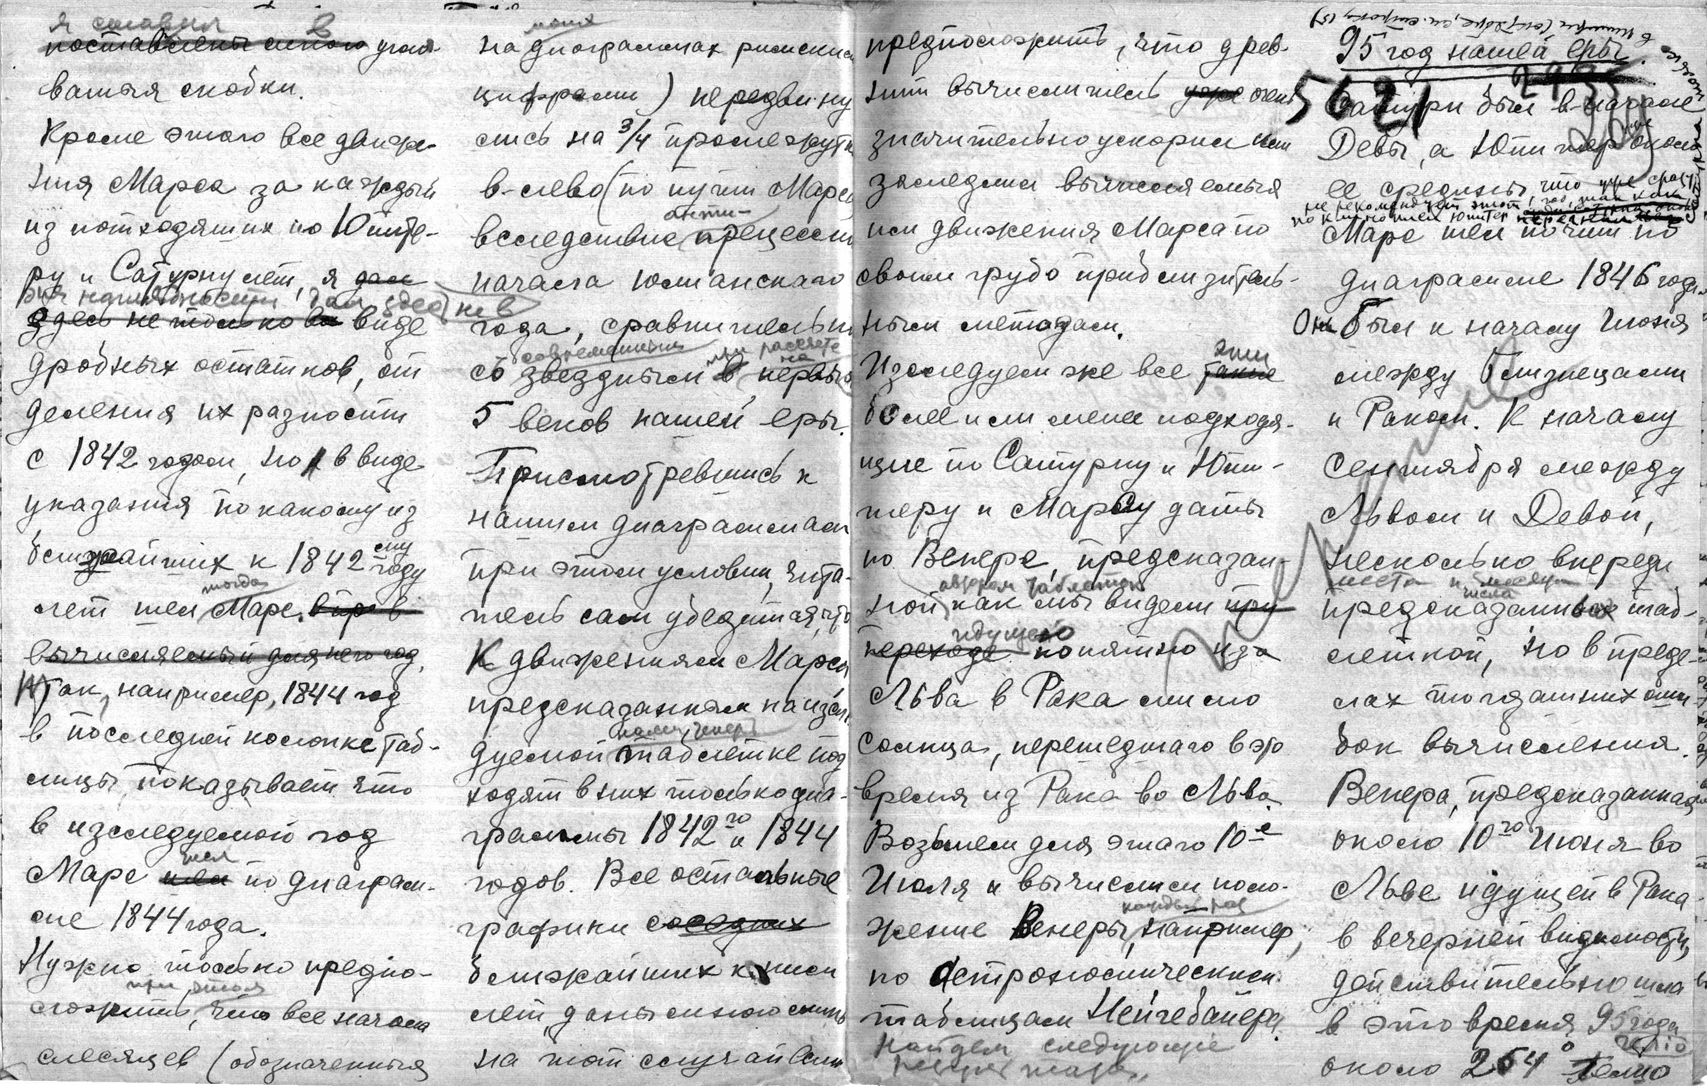 я ставил в
поставлены мною угло-
ватыя скобки.
Кроме этого все движе-
ния Марса за каждый
из подходящих по Юпите-
ру и Сатурну лет, я дал
для наглядности дал здесь не в
здесь не только в виде
дробных остатков, от
деления их разности
с 1842 годом, но и в виде
указания по какому из
ближайших к 1842 му году
лет шел тогда Марс.
вычисляемый для него год.
Так, например, 1844 год
в последней колонке таб-
лицы показывает что
в изследуемой год
Марс шел по диаграм-
ме 1844 года.
Нужно только предпо-
ложить при этом, что все начала
месяцев (обозначенныя
на диаграммах римскими
цифрами) передвину-
лись на 3/4 промежутка
в-лево (по пути Марса
вследствие анти-прецессии
начала юлианскаго
года, сравнительно
со звездным современным при расчете на первые
5 веков нашей еры.
Присмотревшись к
нашим диаграммам
при этом условии, чита-
тель сам убедится, что
к движениям Марса,
предсказанным на изсле-
дуемой нами теперь таблетке под-
ходят в них только диа-
граммы 1842 го и 1844
годов. Все остальные
графики соседних
ближайших к ним
лет даны мною лишь
на тот случай если
предположить, что древ-
ний вычислитель уже очень
значительно ускорил или
замедлил вычисляемыя
им движения Марса по
своим грубо приблизитель-
ным методам.
Изследуем же все эти такие
более или менее подходя-
щие по Сатурну и Юпи-
теру и Марсу даты
по Венере, предсказан-
ной автором таблетки как мы видели при
переходе идущею понятно из
Льва в Рака мимо
солнца, перешедшаго в это
время из Рака во Льва.
Возьмем для этаго 10-е
Июля и вычислим поло-
жение Венеры, каждый раз например,
по Астрономическим
таблицам Нейгебауера.
Найдем следующие
95 год нашей еры.
5621
Сатурн был в начале
Девы, а Юпитер около
ее средины, что уже сразу
не рекомендует этот год,
Марс шел почти по
диаграмме 1846 года.
Он был к началу Июня
между Близнецами
и Раком. К началу
Сентября между
Львом и Девой,
несколько впереди
места и числа месяца
предсказанных таб-
леткой, но в преде-
лах тогдашних оши-
бок вычисления.
Венера, предсказанная
около 10 го Июня во
Льве идущей в Рака
в вечерней видимости,
действительно шла
в это время 95 года
около 264° гелио